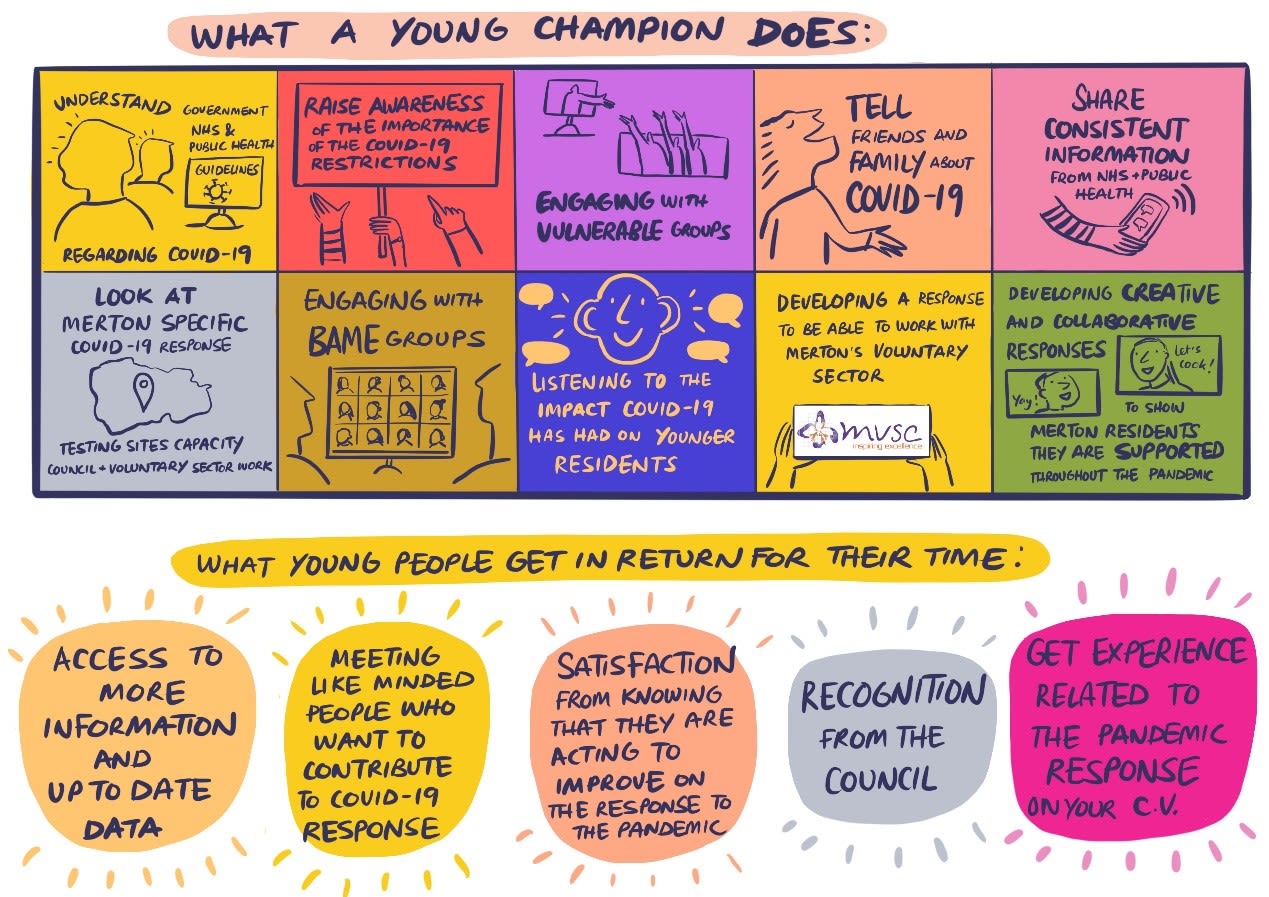 WHAT A YOUNG CHAMPION DOES:
UNDERSTAND
GOVERNMENT
NHS &
PUBLIC HEALTH
GUIDELINES
REGARDING COVID-19
RAISE AWARENESS
OF THE IMPORTANCE
OF THE COVID-19
RESTRICTIONS
ENGAGING WITH
VULNERABLE GROUPS
TELL
FRIENDS AND
FAMILY ABOUT
COVID-19
SHARE
CONSISTENT
INFORMATION
FROM NHS + PUBLIC
HEALTH
LOOK AT
MERTON SPECIFIC
COVID-19 RESPONSE
TESTING SITES CAPACITY
COUNCIL + VOLUNTARY SECTOR WORK
ENGAGING WITH
BAME GROUPS
LISTENING TO THE
IMPACT COVID-19
HAS HAD ON YOUNGER
RESIDENTS
DEVELOPING A RESPONSE
TO BE ABLE TO WORK WITH
MERTON'S VOLUNTARY
SECTOR
mvsc
inspiring excellence
DEVELOPING CREATIVE
AND COLLABORATIVE
RESPONSES
Let's
Cook!
Yay!
TO SHOW
MERTON RESIDENTS
THEY ARE SUPPORTED
THROUGHOUT THE PANDEMIC
WHAT YOUNG PEOPLE GET IN RETURN FOR THEIR TIME:
ACCESS TO
MORE
INFORMATION
AND
UP TO DATE
DATA
MEETING
LIKE MINDED
PEOPLE WHO
WANT TO
CONTRIBUTE
TO COVID-19
RESPONSE
SATISFACTION
FROM KNOWING
THAT THEY ARE
ACTING TO
IMPROVE ON
THE RESPONSE TO
THE PANDEMIC
RECOGNITION
FROM THE
COUNCIL
GET EXPERIENCE
RELATED TO
THE PANDEMIC
RESPONSE
ON YOUR C.V.